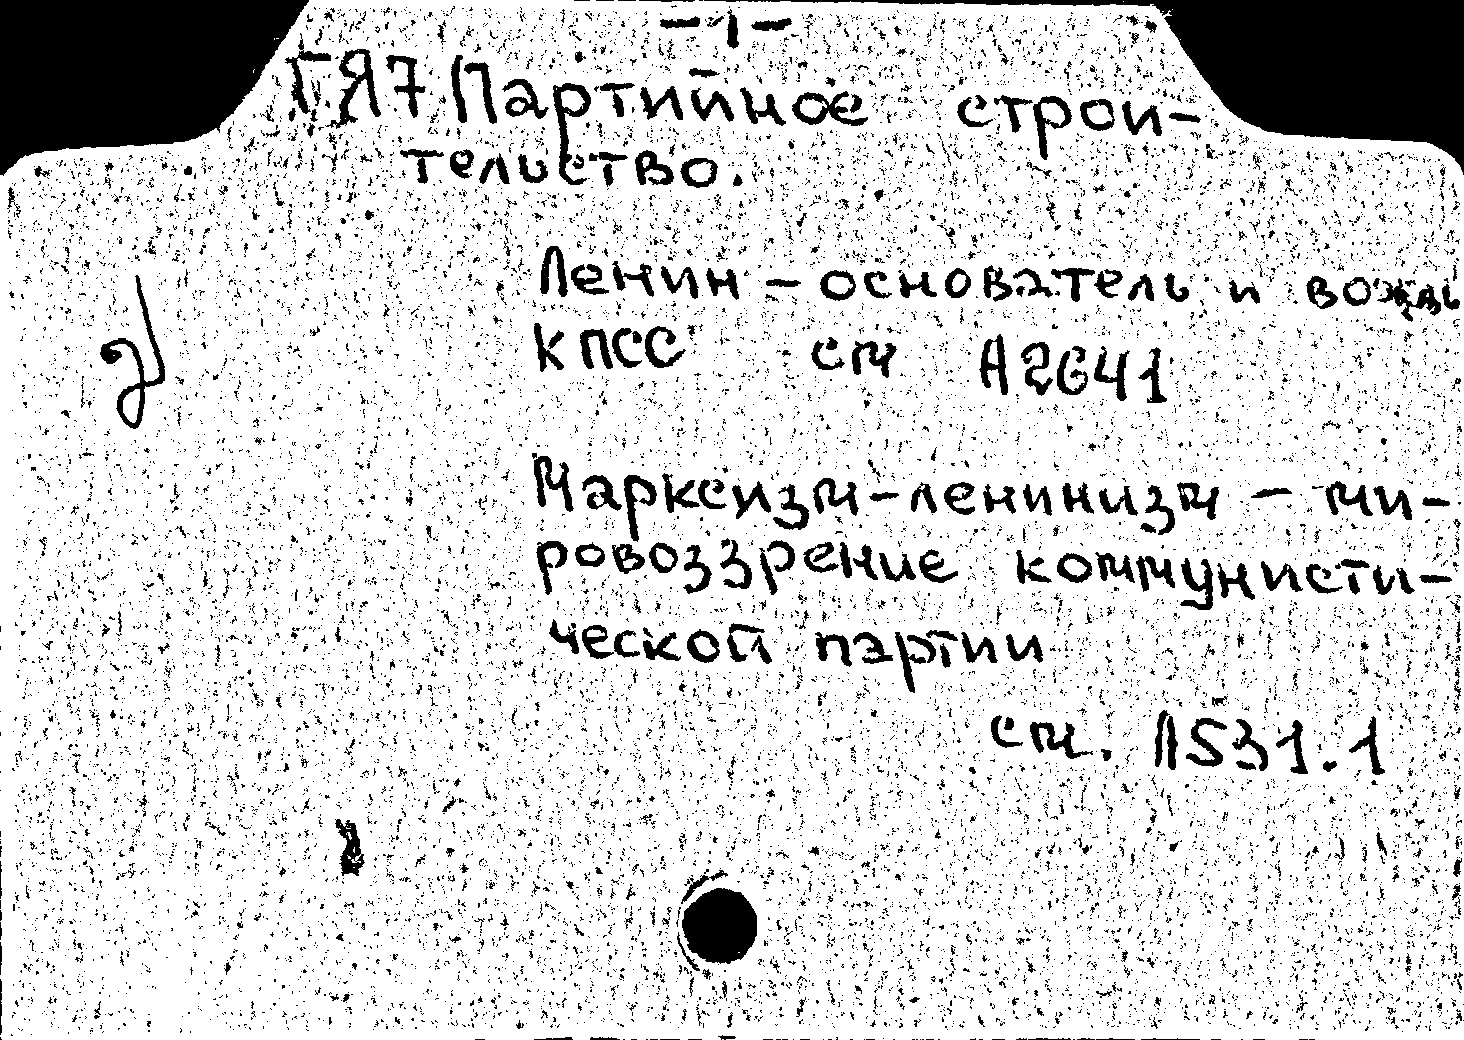 - 1 -
ГЯ7 Партийное строи-
тельство.
Ленин - основатель и вождь
КПСС см А2641
Марксизм-ленинизм - ми-
ровоззрение коммунисти-
ческой партии
см. А531.1